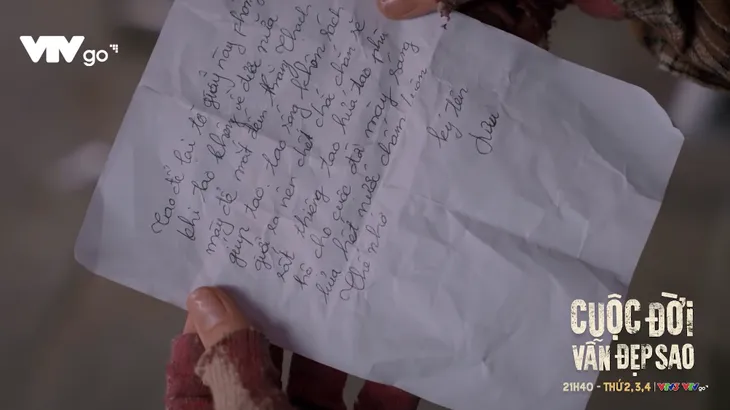 VTV go
Tao để lại tờ giấy này phòng
khi tao không về được nữa
mày để mắt đến thằng Thạch
giúp tao, tao sống không sạch
giời sa nên chết chắc chắn sẽ
rất thiêng, tao hứa tao phù
hộ cho cuộc đời mày sáng
hết nước chấm luôn
Thế nhá
ký tên
Lưu
CUỘC ĐỜI
VẪN ĐẸP SAO
21H40 - THỨ 2,3,4 | VTV3 VTVgo